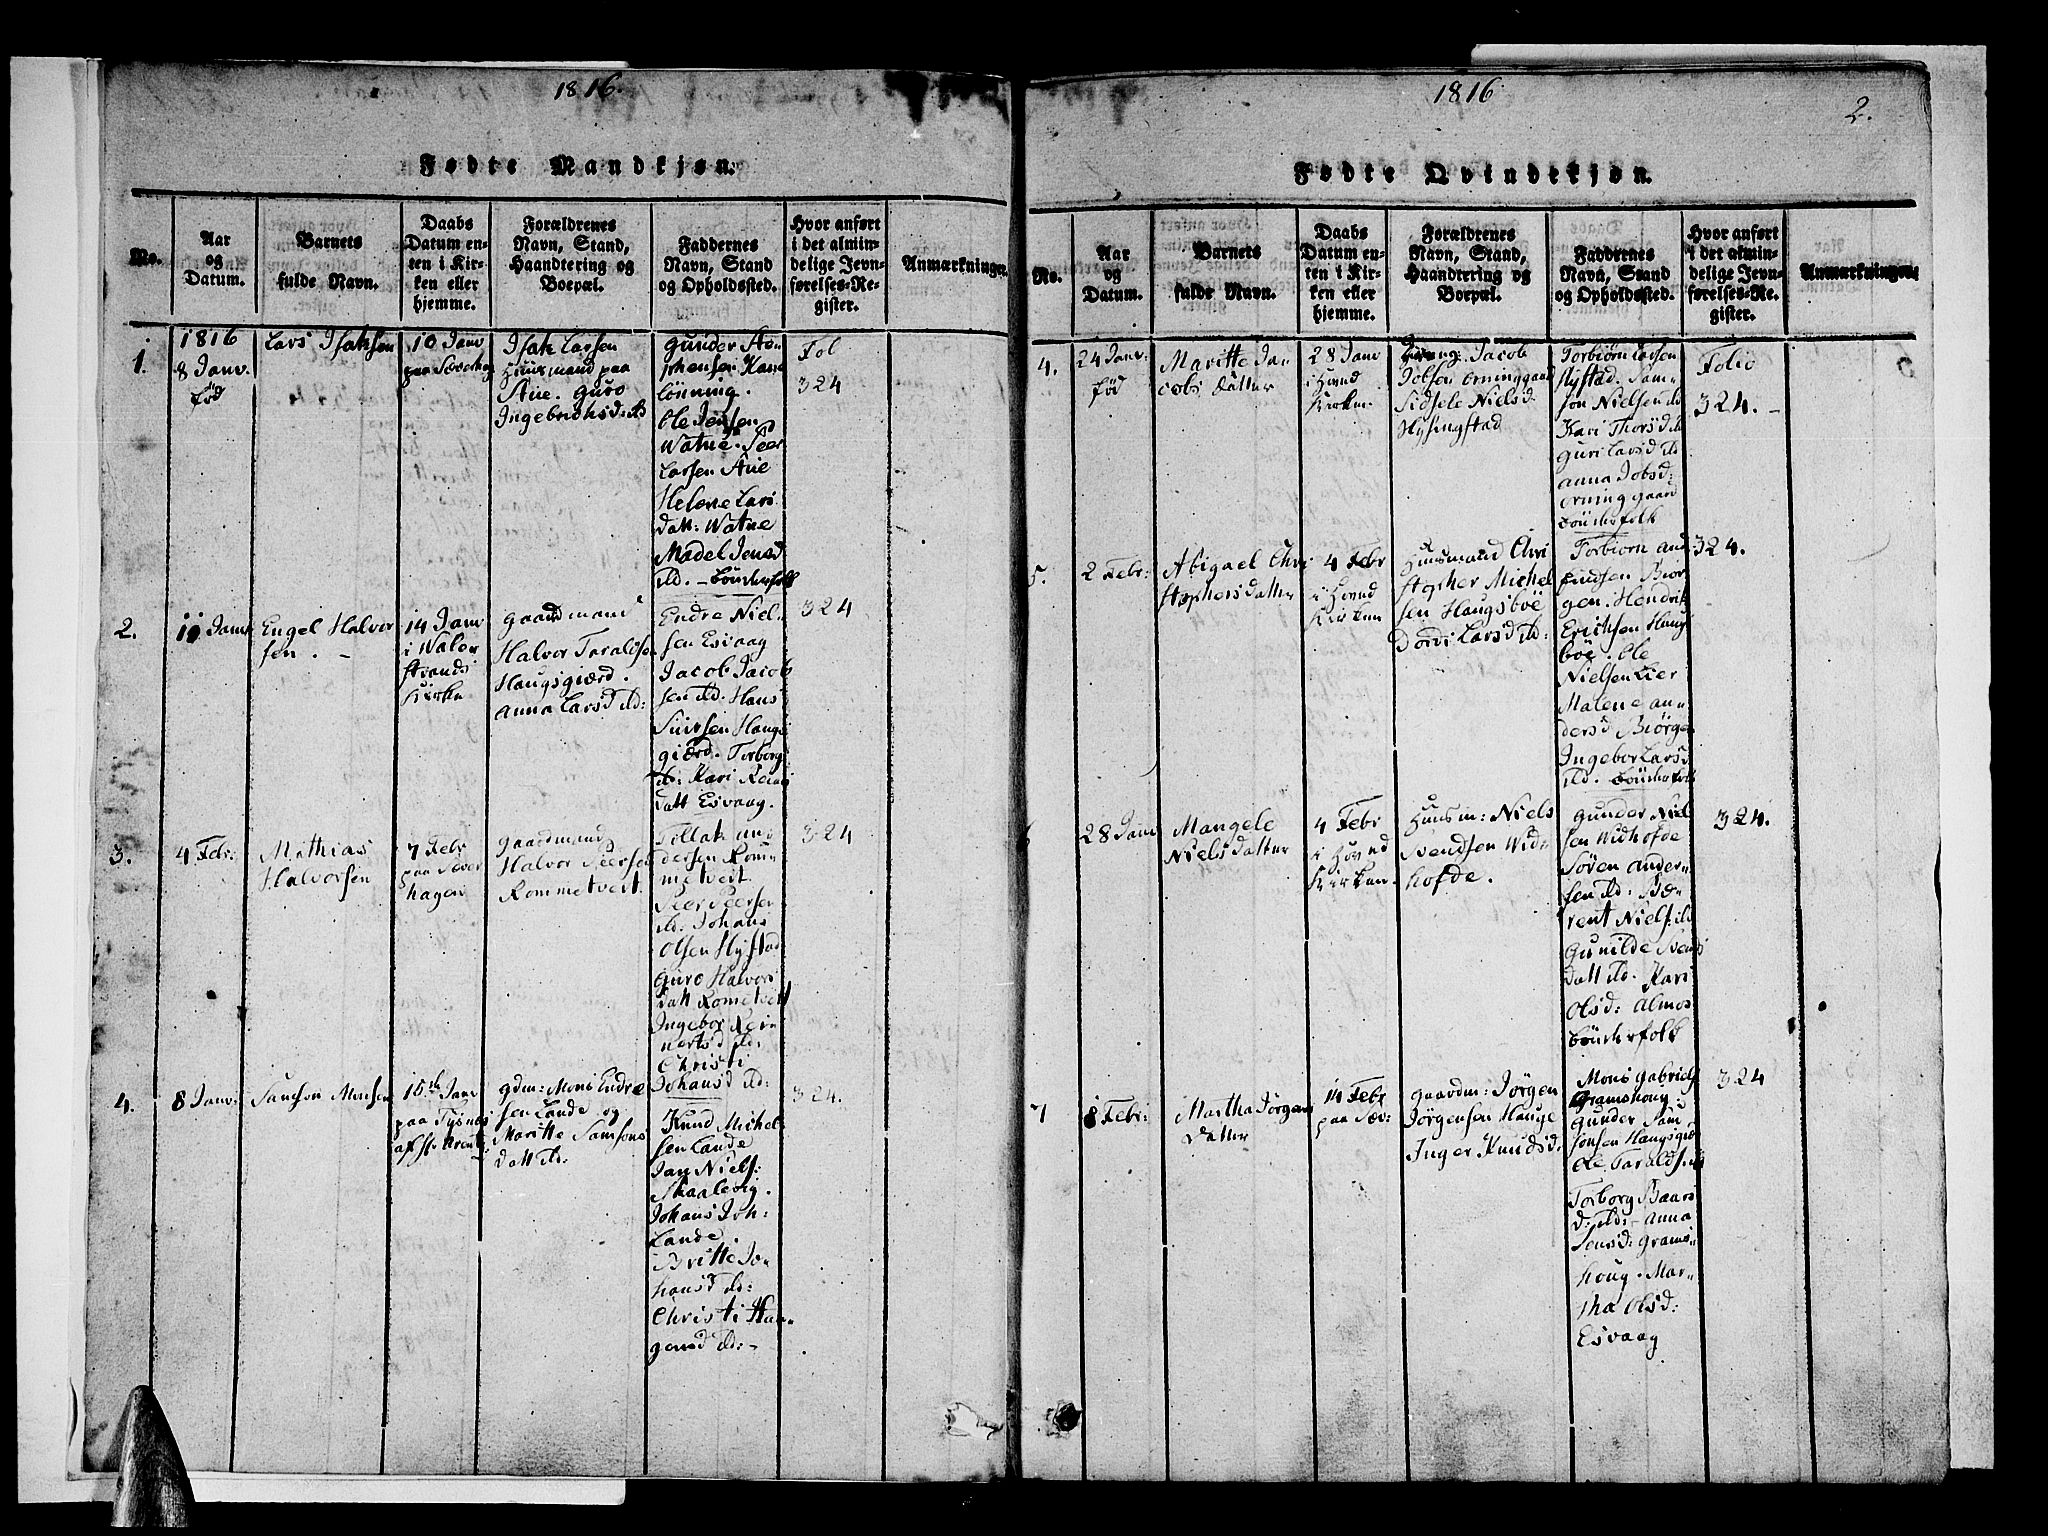 1816.
Fødte Mandkjøn.
No.
Aar
og
Datum.
Barnets
fulde Navn.
Daabs
Datum en-
ten i Kir-
ken eller
hjemme.
Forældrenes
Navn, Stand,
Haandtering og
Boepæl.
Faddernes
Navn, Stand
og Opholdssted.
Hvor anført
i det almin-
delige Jevn-
førelses-Re-
gister.
Anmærkninger.
1.
1816
8 Janv.
fød
Lars Isaksen
10 Janv
paa
Isak Larsen
Huusmand paa
Aue. Guro
Ingebrichsd: ib
Gunder
Johensen
Lönning.
Ole Jensen
Watne. Peer
Larsen Aue
Helene Lars
datt: Watne
Madel Jensd
ild. - bönderfolk
Fol
324
2.
11 Janv
Engel Halvor
sen. -
14 Janv
i Waler
strands
Kirke
Gaardmand
Halvor Taraldsen
Haugsgiærd.
Anna Larsd ild:
Endre Niel-
sen Esvaag
Jacob Jacob
sen ild. Hans
Siursen Haugs
giærd. Torborg
ild: Kari
datt Esvaag.
324
3.
4 Febr:
Mathias
Halvorsen
7 Febr
paa Sæver
hagen
Gaardmand
Halvor Peersen
Rommetveit.
Tollak an-
dersen Rom-
metveit
Peer Peersen
ild: Johans
Olsen Hystad
Guro Halvors
datt Rometveit
Ingebor Rei-
nertsd ild:
Christi
Johansd ild:
324
4.
8 Janv:
Samson Monsen
15de Janv
paa Tysnes
af Hr
Gdm: Mons Endre
sen Lande og
Maritte Samsons
datt ild:
Knud Michel
sen Lande
Jan Niels:
Skaalevig.
Johans Joh:
Lande.
Britte Jo-
hansd ild:
Christi Hau-
gand ild: -
324.
1816
2.
Fødte Qvindekjøn.
No.
Aar
og
Datum.
Barnets
fulde Navn.
Daabs
Datum en-
ten i Kir-
ken eller
hjemme.
Forældrenes
Navn, Stand,
Haandtering og
Boepæl.
Faddernes
Navn, Stand
og Opholdssted.
Hvor anført
i det almin-
delige Jevn-
førelses-Re-
gister.
Anmærkninger.
4.
24 Janv.
fød
Maritte Ja-
cobs datter
28 Janv
i Hoved
Kirken
Jacob
Jobsen Orninggaard
Sidsele Nielsd
Hysingstad
Torbiörn Larsen
Hystad. Sam-
son Nielsen ild
Kari Thorsd ild
Guri Larsd ild
Anna Jobsd:
Orninggaard
bönderfolk
Folio
324. -
5.
2 Febr:
Abigael Chri
stophersdatter
4 Febr
i Hoved
Kirken
Huusmand Chri
stopher Michel
sen Haugsböe
Dorti Larsd ild:
Torbiorn an-
findsen Biör-
gen. Hendrik
Eriksen Haug
böe. Ole
Nielsen Lier
Malene an-
dersd Biörgen
Ingebor Larsd
ild. bönderfolk
324.
6
28 Janv
Mangele
Nielsdatter
4 Febr
i Hoved
Kirken.
Huusm: Niels
Svendsen Wid-
hofde.
Gunder Niel
sen Widhofde
Sören Ander-
sen ild: Bæ-
rent Niels: ild
Gunilde Svends
datt ild. Kari
Olsd: Almos
bönderfolk
324.
7
8 Febr:
Martha Jörgens
datter
14 Febr
paa Sæv:
Gaardm: Jörgen
Jörgensen Hauge
Inger Knudsd:
Mons Gabriels
Gramshoug:
Gunder Sam
sonsen Haugsgiæ
Ole Taralds: ib
Torborg Baars
d: ild: - Anna
Jensd: Grams-
houg. Mar-
tha Olsd:
Esvaag
324